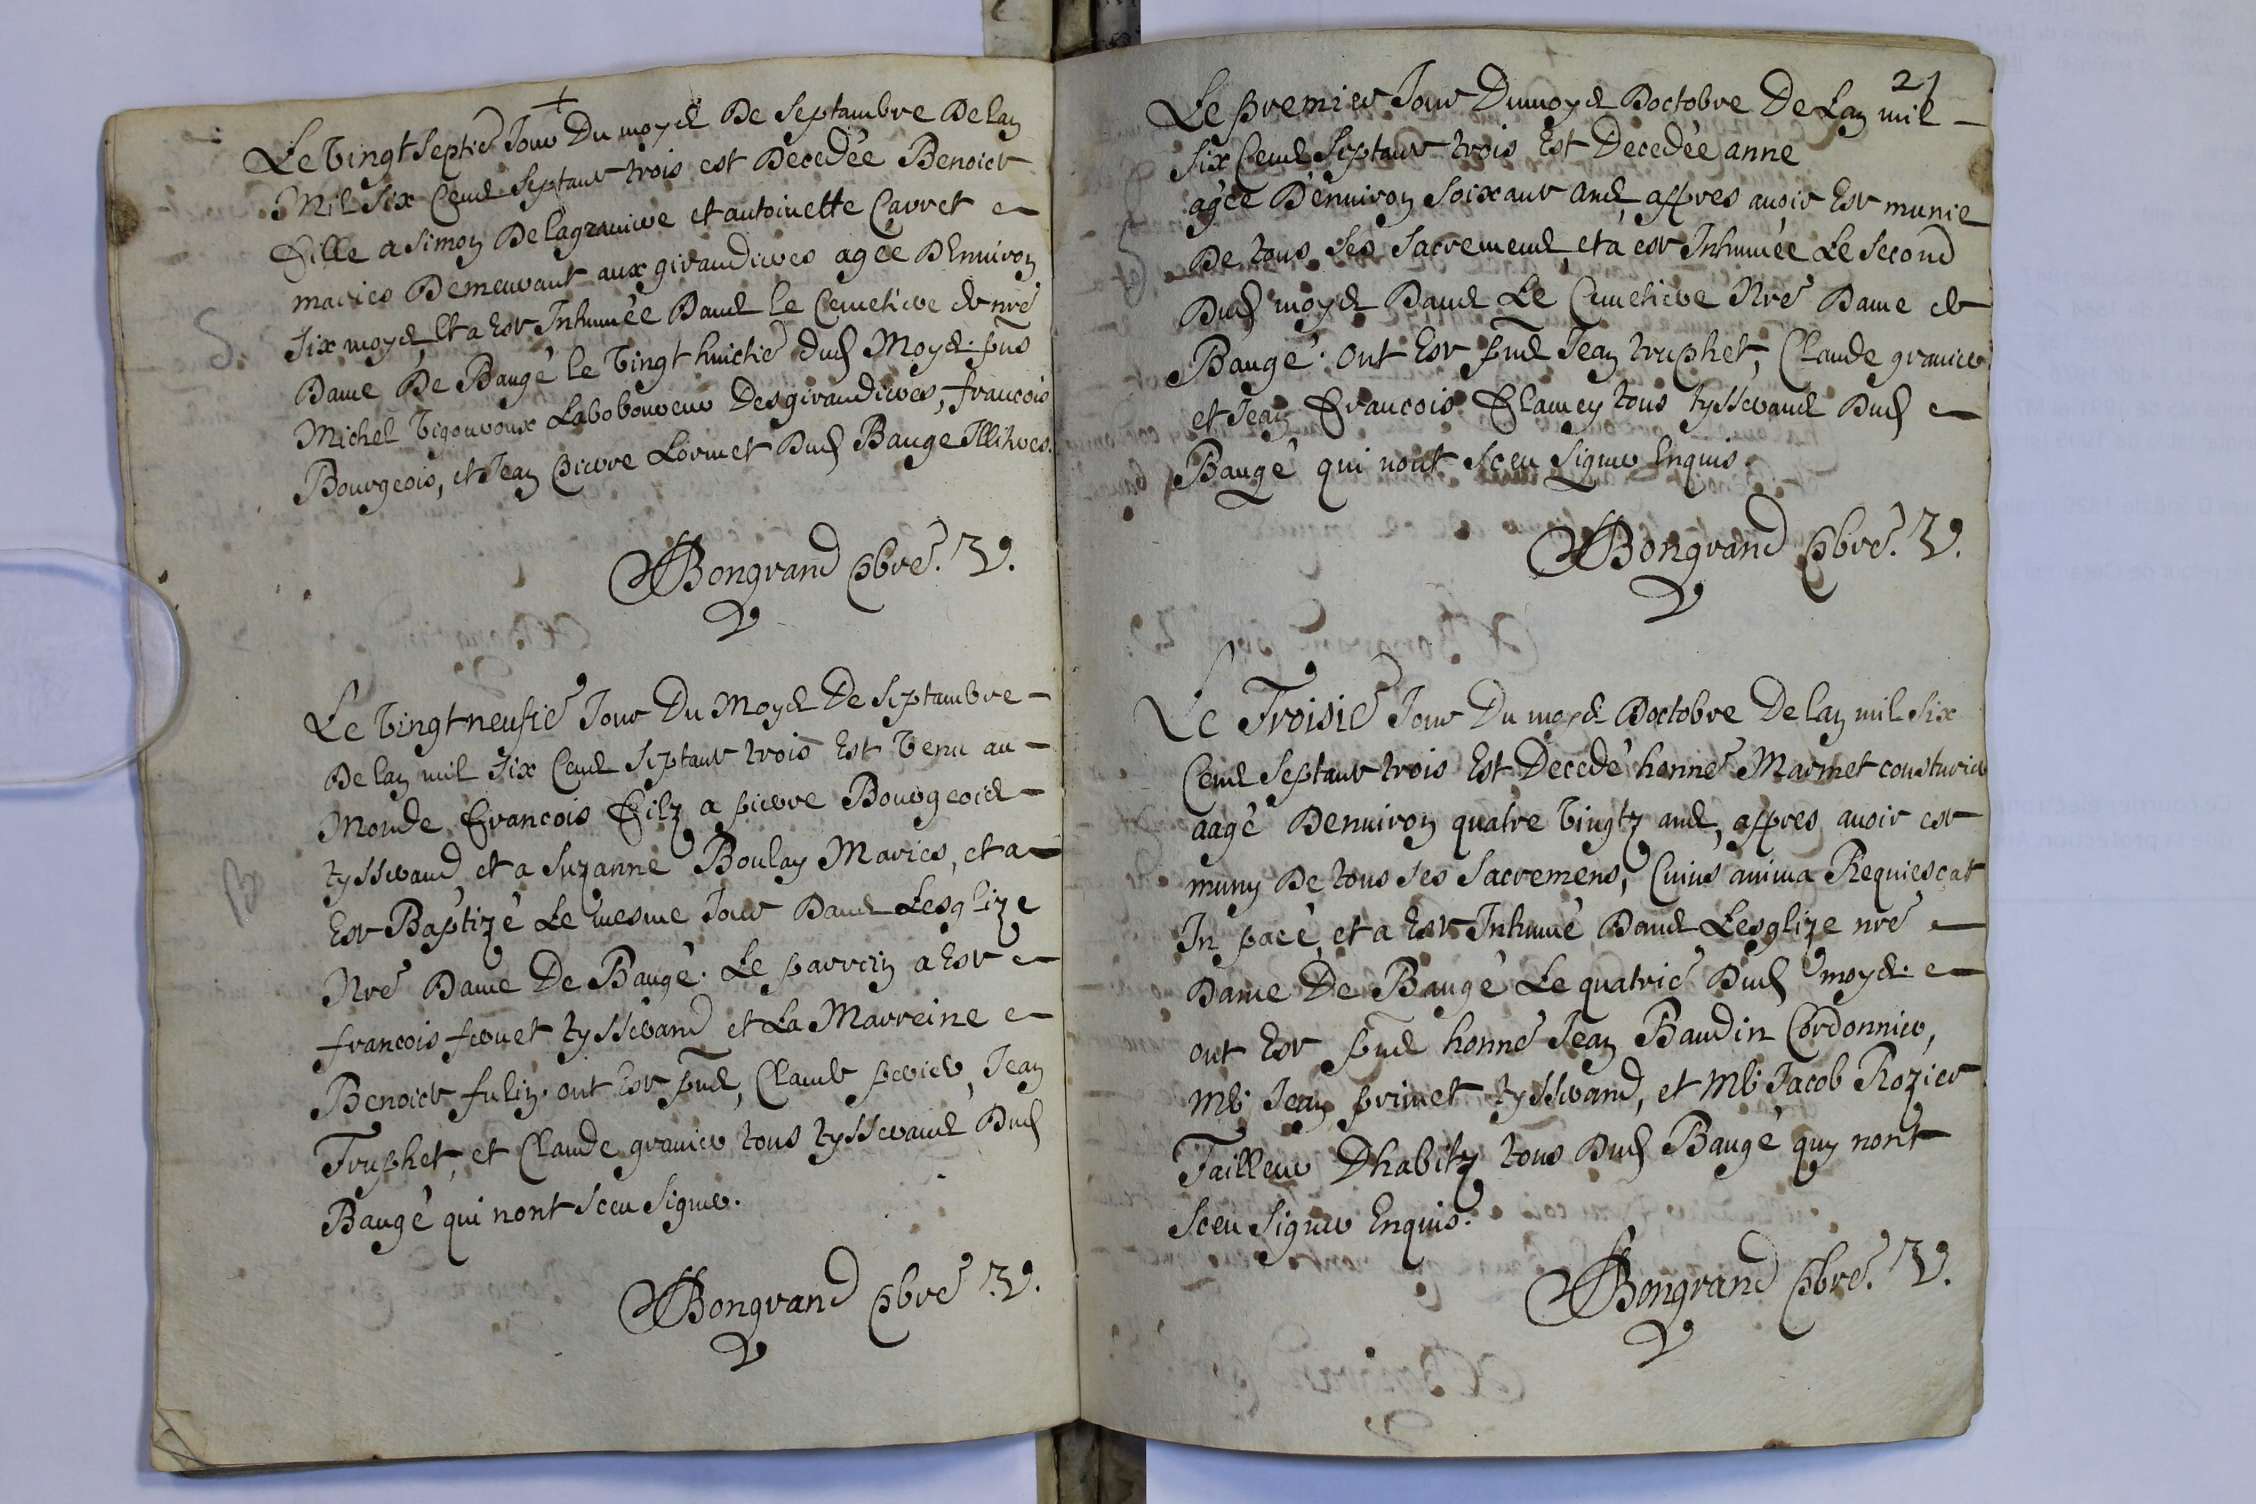 +
Le vingt septie Jour Du moys De Septambre De lan
Mil Six Cens Septante trois est Decedée Benoiste
Fille a Simon Delagraniere et antoinette Carret
maries Demeurant aux girandieres agée D'Enuiron
Six moys, Et a Este Inhumée Dans le Cemetiere de nre
S.
Dame De Baugé le Vingt huictie dud Moys. pns
Michel Vigouroux Laboboureur Desgirandieres, francois
Bourgeois, et Jean pierre Lormet Dud Bauge Illitres.
Bongrand pbre. V.
Le Vingtneufie Jour Du Moys De Septambre
De lan mil Six Cens Septante trois Est Venu au
Monde Francois Filz a pierre Bourgeois
tysserand, et a Suzanne Boulay Maries, et a
B
Este Baptizé Le mesme Jour Dans Lesglize
Nre Dame De Baugé. Le parrein a Este
francois feruet tysserand et La Marreine
Benoiste fulin. ont Este pns, Claude perier, Jean
Truphet, et Claude granier tous tysserands Dud
Baugé qui nont Sceu Signer.
Bongrand pbre V.
21
Le premier Jour Du moys Doctobre De Lan mil
Six Cens Septante trois Est Decedée anne
agée D'enuiron Soixante ans, appres auoir Este munie
De tous Ses Sacremens, et a este Inhumée Le Second
Dud moys Dans Le Cimetiere Nre Dame de
Baugé. ont Este pns Jean truphet, Claude granier
et Jean Francois Flamey tous tysserands Dud
Baugé qui nont Sceu Signer Enquis.
Bongrand pbre. V.
Le Troisie Jour Du moys Doctobre De lan mil Six
Cens Septante trois Est Decedé honne Marmet cousturier
aagé Denuiron quatre Vingtz ans, appres auoir este
muny De tous Ses Sacremens, Cuius anima Requiescat
In pace, et a Este Inhumé Dans Lesglize nre
Dame De Baugé Le quatrie Dud moys.
ont Este pns honne Jean Baudin Cordonnier,
Mr. Jean primet tysserand, et Mr. Jacob Rozier
Tailleur Dhabitz tous Dud Baugé quy nont
Sceu Signer Enquis.
Bongrand pbre. V.